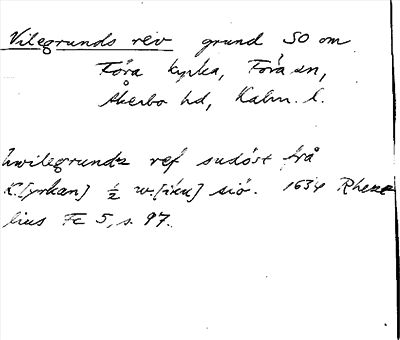 Vilegrunds rev grund SO om
Föra kyrka, Föra sn,
Åkerbo hd, Kalm. l.
hwilegrundz ref sudóst frå
K[yrkan] ½ w.[iku] siö. 1634 Rheze
lius Fc 5, s. 97.